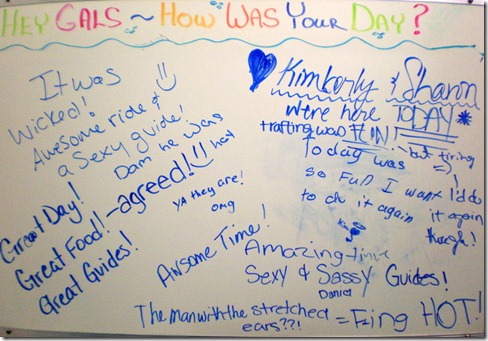 HEY GALS ~ HOW WAS YOUR DAY?
It was
Wicked!
Awesome ride &
a Sexy guide!
Dam he was
hot
Great Day!
Great Food! - agreed!
Great Guides!
YA they are!
OMG
Kimberly & Sharon
were here TODAY
rafting was FUN!
but tiring
Today was
so fun I want
to do it again
I'd do
it again
though!
Kim
Awsome Time!
Amazing time
Sexy & Sassy Guides!
The man with the stretched
ears??! = F-ing HOT!